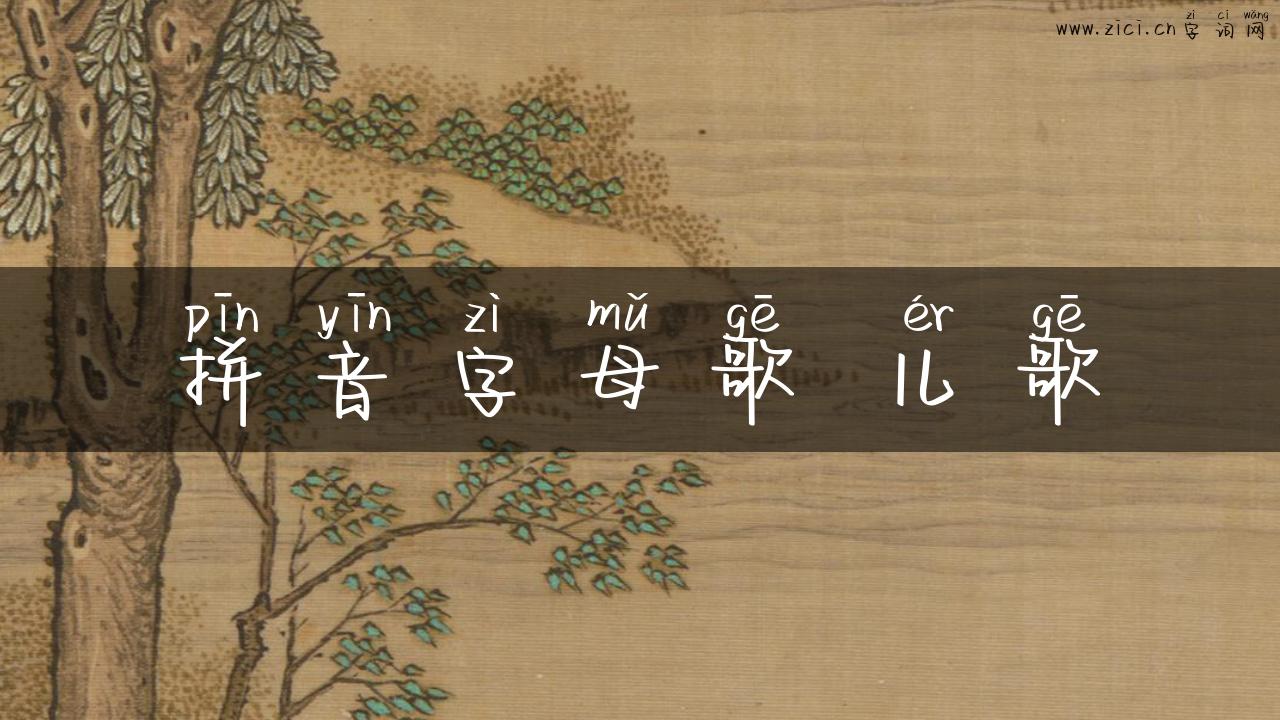 zì cí wǎng
www.zici.cn 字 词 网
pīn yīn zì mǔ gē ér gē
拼 音 字 母 歌 儿 歌